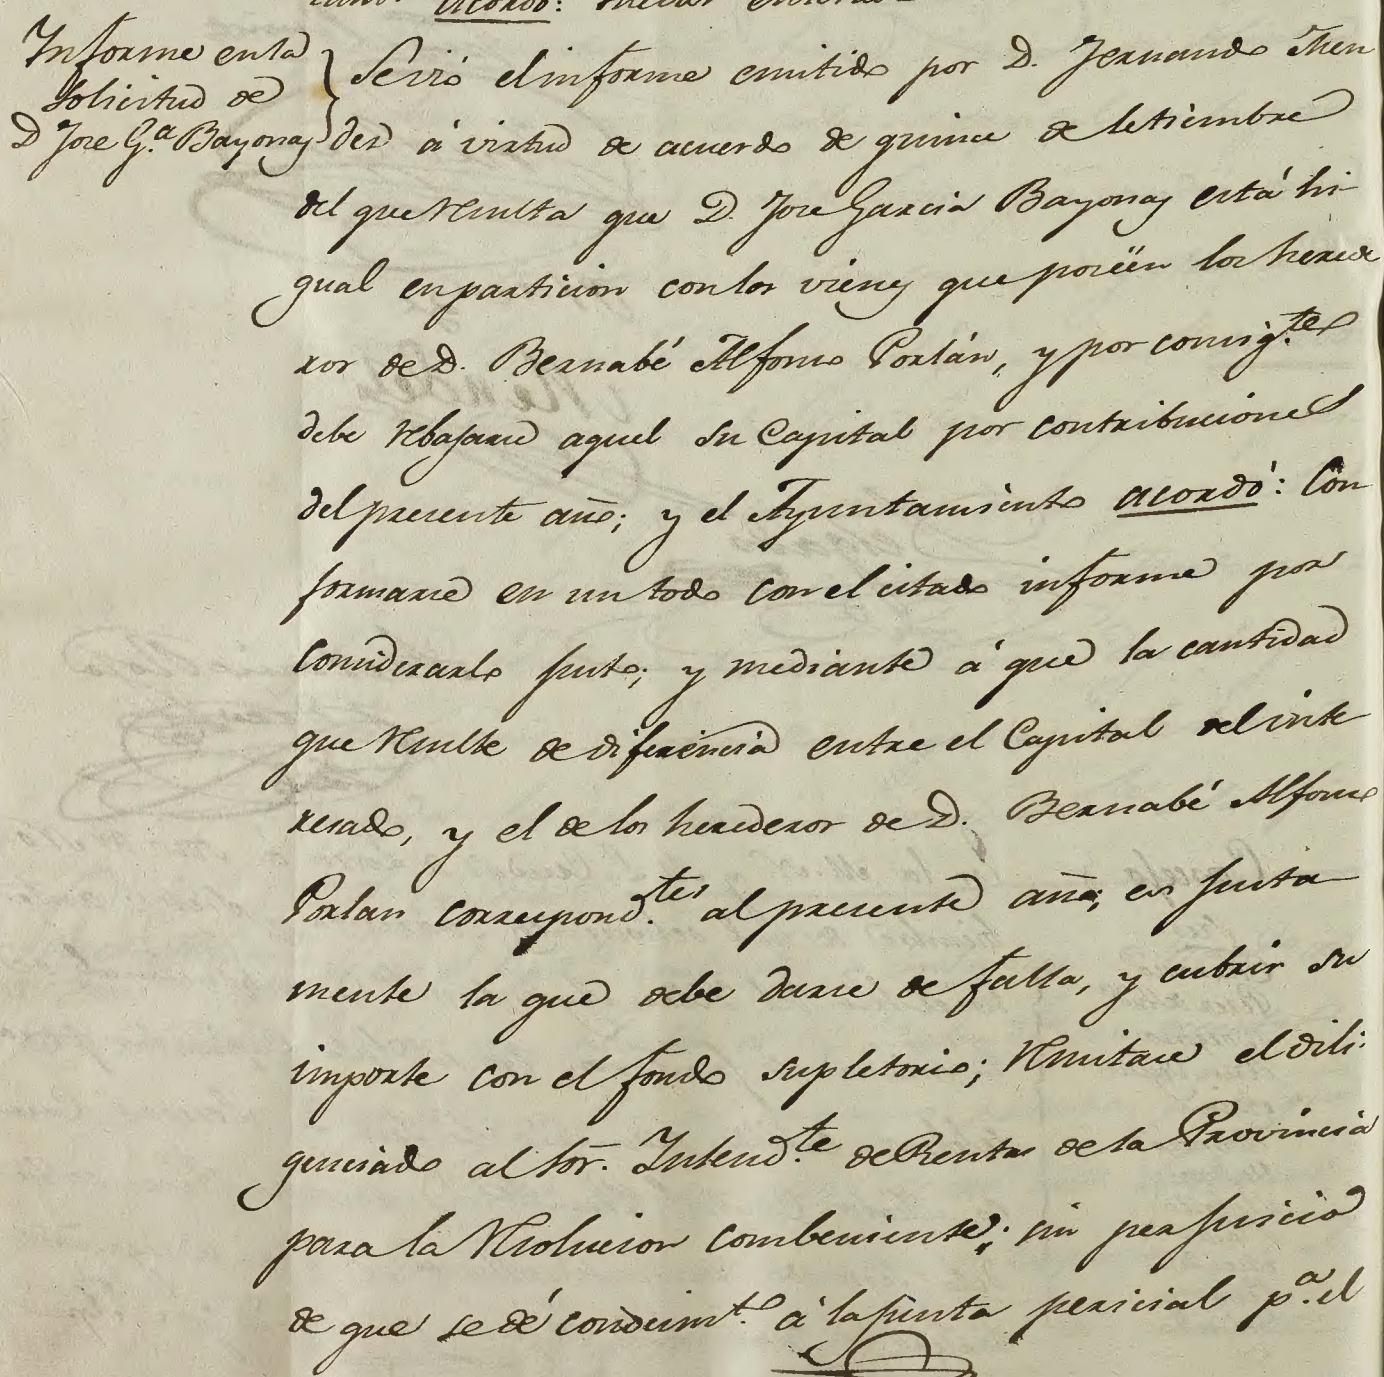 acordó:
Informe en la
solicitud de
D Jose G.ª Bayonas
Se vió el informe emitido por D. Fernando Men
dez á virtud de acuerdo de quince de Setiembre
del que resulta que D. Jose Garcia Bayonas está hi
gual en particion con los vienes que poséen los herede
ros de D. Bernabé Alfonso Porlán, y por consig.te
debe rebajarse aquel su Capital por contribuciones
del presente año; y el Ayuntamiento acordó: Con
formarse en un todo con el citado informe por
considerarlo justo; y mediante á que la cantidad
que resulte de diferencia entre el Capital del inte
resado, y el de los herederos de D. Bernabé Alfonso
Porlan correspond.tes al presente año; es justa
mente la que debe darse de falla, y cubrir su
importe con el fondo supletorio; remitase el dili
genciado al Sor. Intend.te de Rentas de la Provincia
para la resolucion combeniente; sin perjuicio
de que se dé conocim.to á la junta pericial p.ª el